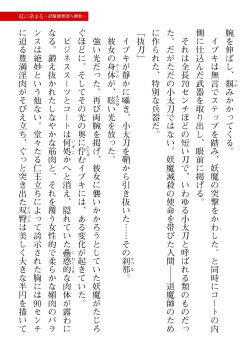 紅に染まる -誤醒練思蛮ち終む-
腕を伸ばし、掴みかかってくる。
イブキは無言でステップを踏み、妖魔の突撃をかわした。と同時にコートの内
側に仕込んだ武器を取り出し、眼前に掲げる。
それは全長70センチほどの短い刃物で、いわゆる小太刀と呼ばれる類のものだっ
た。だがただの小太刀ではない。妖魔滅殺の使命を帯びた人間――退魔師のため
に作られた、特別な兵器だ。
「抜刀」
イブキが静かに囁き、小太刀を鞘から引き抜いた……その刹那。
彼女の身体が、眩い光を放った。
強い光だった。再び両腕を掲げて、彼女に襲いかかろうとしていた妖魔がたじろ
ぐほどに。そしてその光の奥に佇むイブキには、ある変化が起きていた。
ビジネススーツとコートは何処かへと消え、隠れていた蠱惑的な肉体が露わに
なる。鍛え抜かれたしなやかな肉体と、それを覆う女性的で柔らかな媚肉のバラ
ンスは絶妙という他ない。堂々たる仁王立ちによって誇示された胸は90センチ
に迫る豊満淫肉がそびえ立ち、ぐっと突き出た双臀は美しく大きな半円を描いて